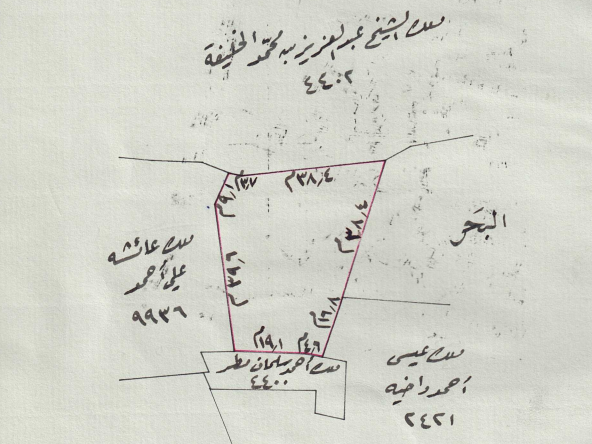 ملك الشيخ عبدالعزيز بن محمد الخليفة
٤٤٠٢
٣٫٧م
٣٨٫٤م
٩٫١م
٣٨٫٤م
البحر
ملك عائشه
علي أحمد
٩٩٣٦
٣٩٫٦م
١٦٫٨م
١٩٫١م
٤٫٦م
ملك أحمد سلمان مطر
٤٤٠٠
ملك عيسى
أحمد واخيه
٢٤٢١